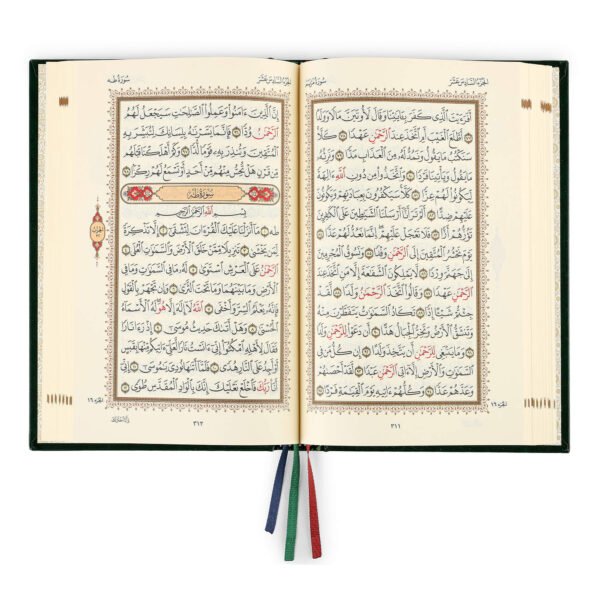 الجزء السادس عشر سورة مريم
أَفَرَءَيْتَ ٱلَّذِى كَفَرَ بِـَٔايَـٰتِنَا وَقَالَ لَأُوتَيَنَّ مَالًا وَوَلَدًا ٧٧
أَطَّلَعَ ٱلْغَيْبَ أَمِ ٱتَّخَذَ عِندَ ٱلرَّحْمَـٰنِ عَهْدًا ٧٨ كَلَّا
سَنَكْتُبُ مَا يَقُولُ وَنَمُدُّ لَهُۥ مِنَ ٱلْعَذَابِ مَدًّا ٧٩ وَنَرِثُهُۥ
مَا يَقُولُ وَيَأْتِينَا فَرْدًا ٨٠ وَٱتَّخَذُوا۟ مِن دُونِ ٱللَّهِ ءَالِهَةً
لِّيَكُونُوا۟ لَهُمْ عِزًّا ٨١ كَلَّا سَيَكْفُرُونَ بِعِبَادَتِهِمْ وَيَكُونُونَ
عَلَيْهِمْ ضِدًّا ٨٢ أَلَمْ تَرَ أَنَّآ أَرْسَلْنَا ٱلشَّيَـٰطِينَ عَلَى ٱلْكَـٰفِرِينَ
تَؤُزُّهُمْ أَزًّا ٨٣ فَلَا تَعْجَلْ عَلَيْهِمْ إِنَّمَا نَعُدُّ لَهُمْ عَدًّا ٨٤
يَوْمَ نَحْشُرُ ٱلْمُتَّقِينَ إِلَى ٱلرَّحْمَـٰنِ وَفْدًا ٨٥ وَنَسُوقُ ٱلْمُجْرِمِينَ
إِلَىٰ جَهَنَّمَ وِرْدًا ٨٦ لَّا يَمْلِكُونَ ٱلشَّفَـٰعَةَ إِلَّا مَنِ ٱتَّخَذَ عِندَ
ٱلرَّحْمَـٰنِ عَهْدًا ٨٧ وَقَالُوا۟ ٱتَّخَذَ ٱلرَّحْمَـٰنُ وَلَدًا ٨٨ لَّقَدْ
جِئْتُمْ شَيْـًٔا إِدًّا ٨٩ تَكَادُ ٱلسَّمَـٰوَٰتُ يَتَفَطَّرْنَ مِنْهُ
وَتَنشَقُّ ٱلْأَرْضُ وَتَخِرُّ ٱلْجِبَالُ هَدًّا ٩٠ أَن دَعَوْا۟ لِلرَّحْمَـٰنِ وَلَدًا
٩١ وَمَا يَنۢبَغِى لِلرَّحْمَـٰنِ أَن يَتَّخِذَ وَلَدًا ٩٢ إِن كُلُّ مَن فِى
ٱلسَّمَـٰوَٰتِ وَٱلْأَرْضِ إِلَّآ ءَاتِى ٱلرَّحْمَـٰنِ عَبْدًا ٩٣ لَّقَدْ أَحْصَىٰهُمْ
وَعَدَّهُمْ عَدًّا ٩٤ وَكُلُّهُمْ ءَاتِيهِ يَوْمَ ٱلْقِيَـٰمَةِ فَرْدًا ٩٥
الجزء ١٦
٣١١
الجزء السادس عشر سورة طه
إِنَّ ٱلَّذِينَ ءَامَنُوا۟ وَعَمِلُوا۟ ٱلصَّـٰلِحَـٰتِ سَيَجْعَلُ لَهُمُ
ٱلرَّحْمَـٰنُ وُدًّا ٩٦ فَإِنَّمَا يَسَّرْنَـٰهُ بِلِسَانِكَ لِتُبَشِّرَ بِهِ
ٱلْمُتَّقِينَ وَتُنذِرَ بِهِۦ قَوْمًا لُّدًّا ٩٧ وَكَمْ أَهْلَكْنَا قَبْلَهُم
مِّن قَرْنٍ هَلْ تُحِسُّ مِنْهُم مِّنْ أَحَدٍ أَوْ تَسْمَعُ لَهُمْ رِكْزًۢا ٩٨
سورة طه
بِسْمِ ٱللَّهِ ٱلرَّحْمَـٰنِ ٱلرَّحِيمِ
طه ١ مَآ أَنزَلْنَا عَلَيْكَ ٱلْقُرْءَانَ لِتَشْقَىٰٓ ٢ إِلَّا تَذْكِرَةً
لِّمَن يَخْشَىٰ ٣ تَنزِيلًا مِّمَّنْ خَلَقَ ٱلْأَرْضَ وَٱلسَّمَـٰوَٰتِ ٱلْعُلَى ٤
ٱلرَّحْمَـٰنُ عَلَى ٱلْعَرْشِ ٱسْتَوَىٰ ٥ لَهُۥ مَا فِى ٱلسَّمَـٰوَٰتِ وَمَا فِى
ٱلْأَرْضِ وَمَا بَيْنَهُمَا وَمَا تَحْتَ ٱلثَّرَىٰ ٦ وَإِن تَجْهَرْ بِٱلْقَوْلِ
فَإِنَّهُۥ يَعْلَمُ ٱلسِّرَّ وَأَخْفَى ٧ ٱللَّهُ لَآ إِلَـٰهَ إِلَّا هُوَ لَهُ ٱلْأَسْمَآءُ
ٱلْحُسْنَىٰ ٨ وَهَلْ أَتَىٰكَ حَدِيثُ مُوسَىٰٓ ٩ إِذْ رَءَا نَارًا
فَقَالَ لِأَهْلِهِ ٱمْكُثُوٓا۟ إِنِّىٓ ءَانَسْتُ نَارًا لَّعَلِّىٓ ءَاتِيكُم مِّنْهَا بِقَبَسٍ
أَوْ أَجِدُ عَلَى ٱلنَّارِ هُدًى ١٠ فَلَمَّآ أَتَىٰهَا نُودِىَ يَـٰمُوسَىٰٓ ١١ إِنِّىٓ
أَنَا۠ رَبُّكَ فَٱخْلَعْ نَعْلَيْكَ إِنَّكَ بِٱلْوَادِ ٱلْمُقَدَّسِ طُوًى ١٢
الجزء ١٦
٣١٢